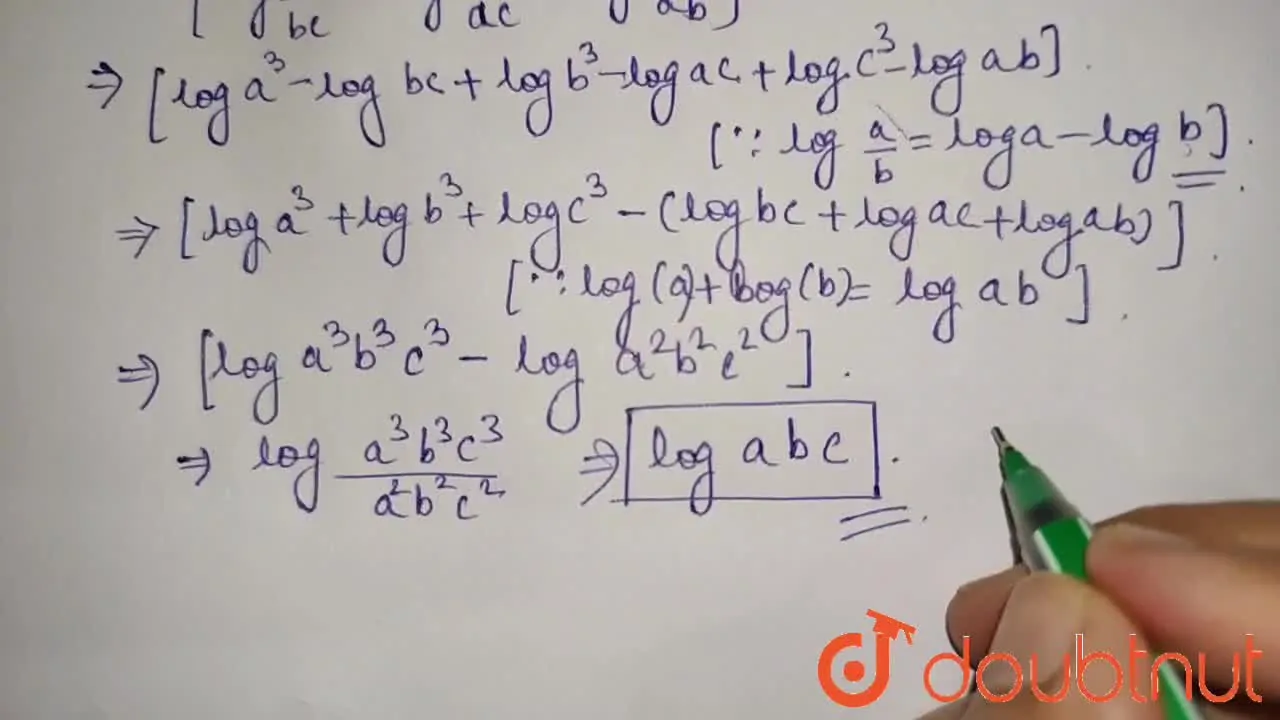 [ g bc g ac g ab ]
⇒ [log a³ - log bc + log b³ - log ac + log c³ - log ab] .
[∵ log a/b = log a - log b] .
⇒ [log a³ + log b³ + log c³ - (log bc + log ac + log ab)] .
[∵ log (a) + log (b) = log ab] .
⇒ [log a³b³c³ - log a²b²c²] .
⇒ log a³b³c³/a²b²c² ⇒ log abc .
doubtnut